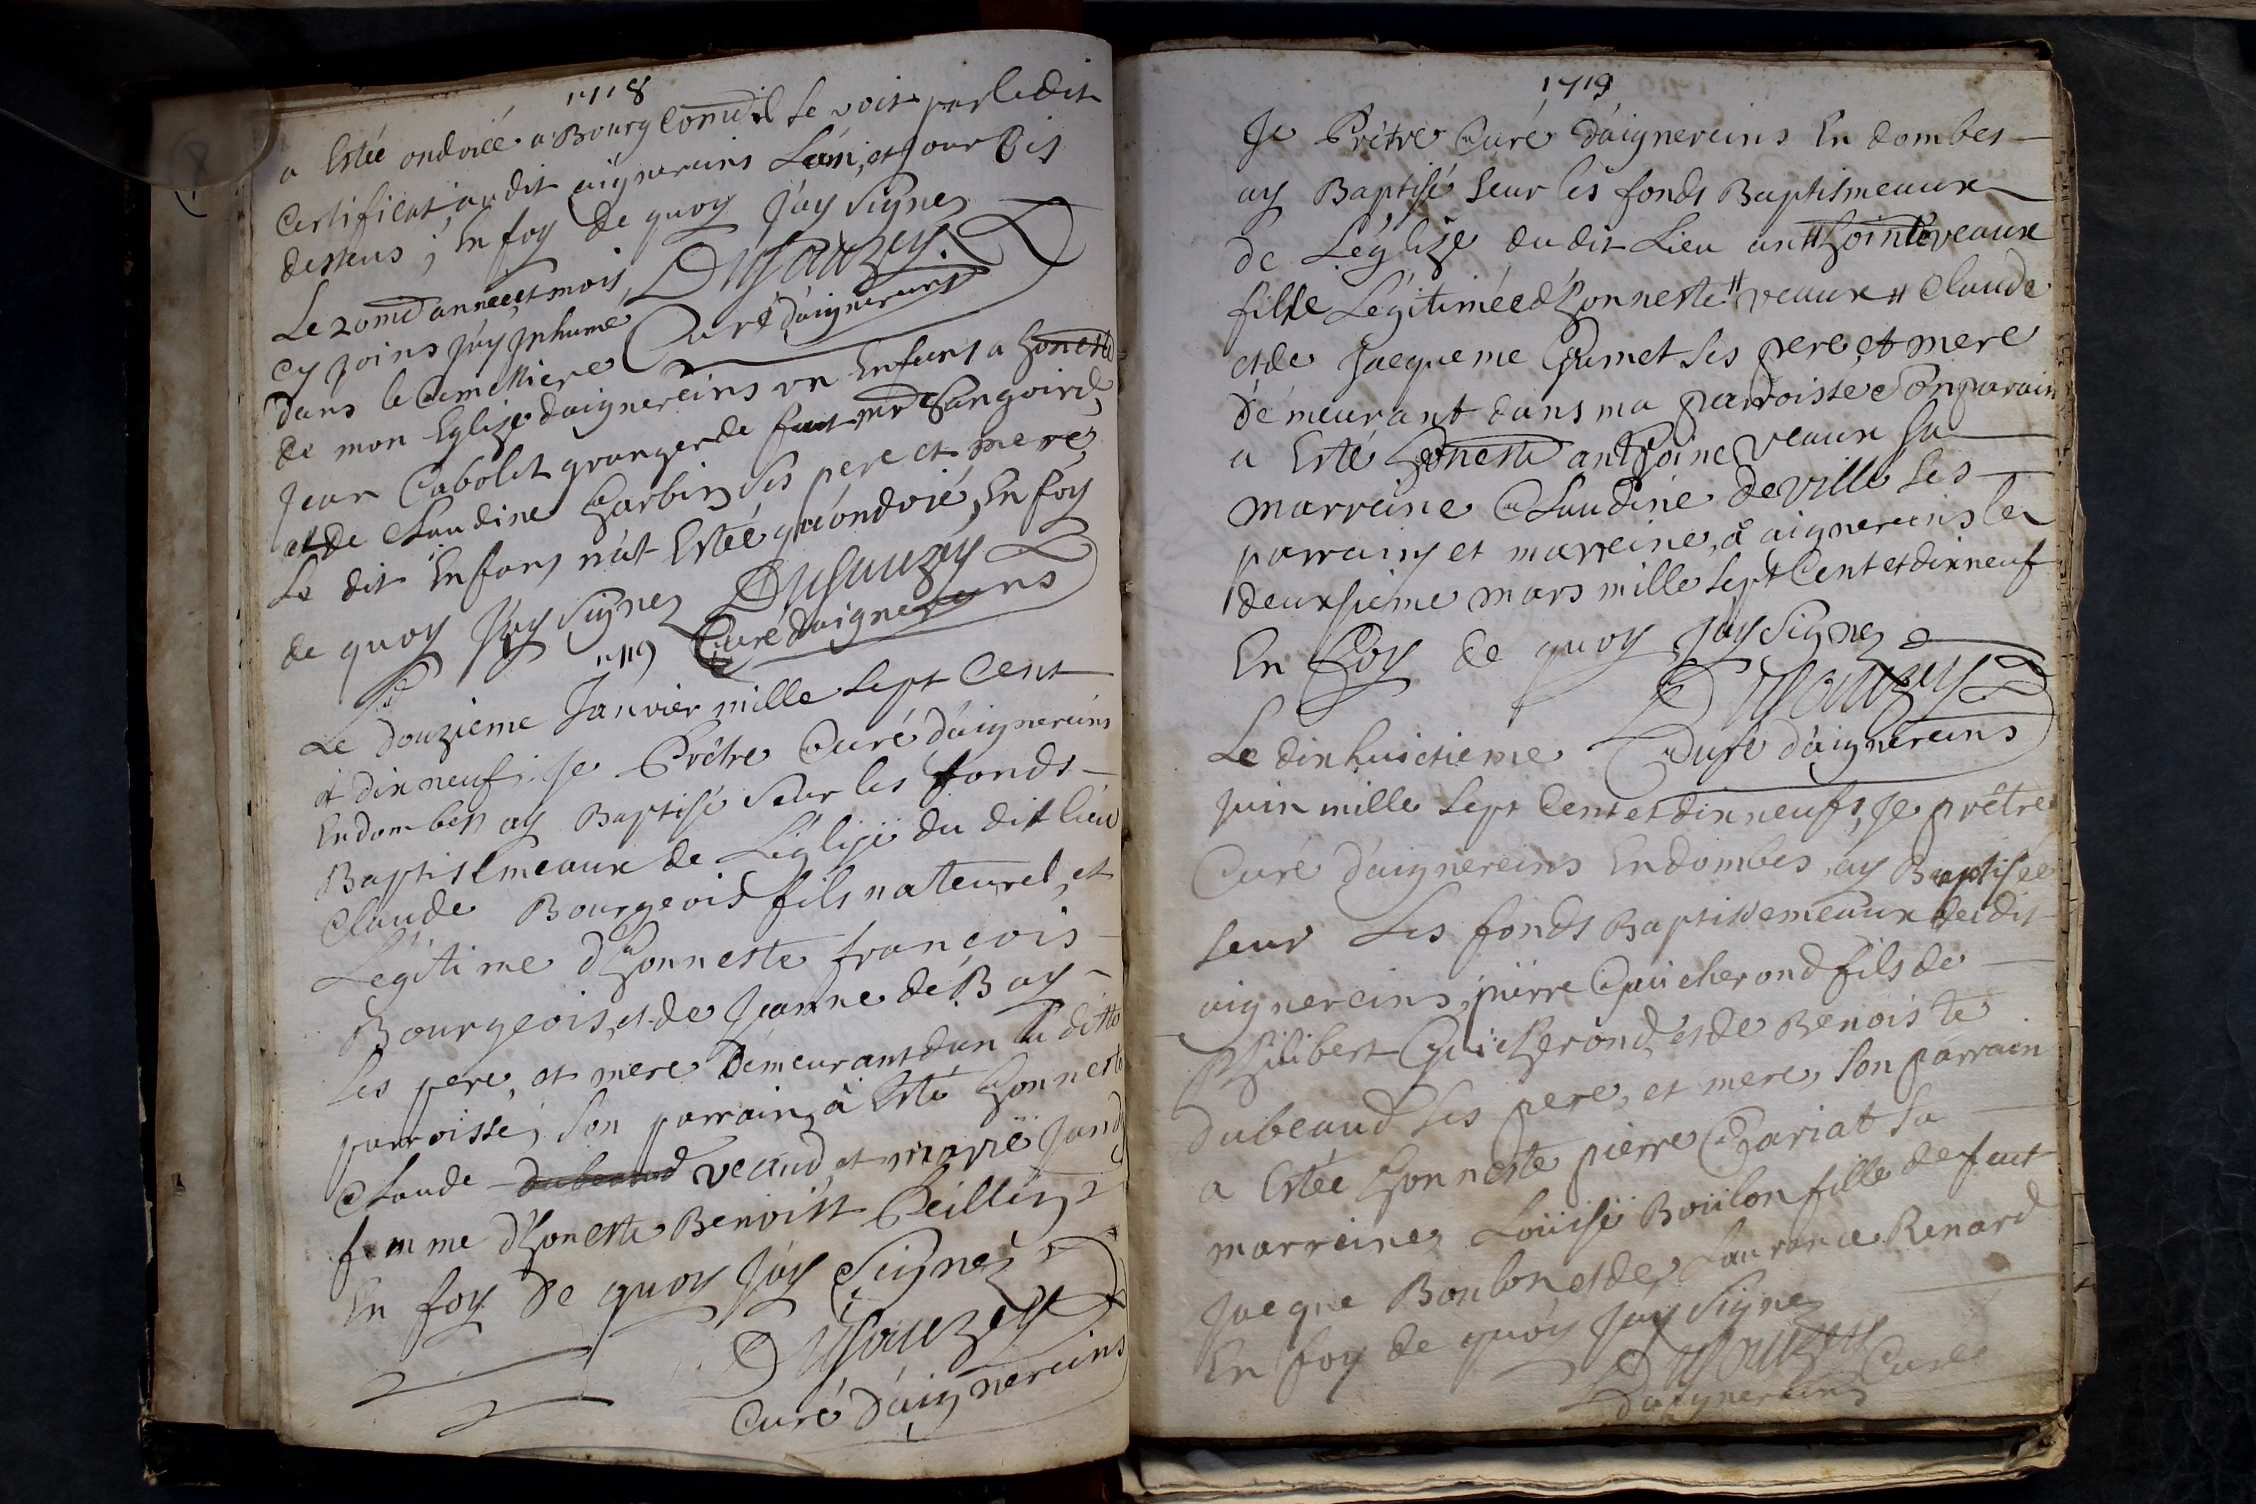 1718
a Estée ondoiée a Bourg Comd il se voit par le dit
Certificat audit aignereins L'an, et jour Bis
dessens ; En foy de quoy j'ay Signez
Dusauzey
Le 20md année, et mois
cy joins j'ay Inhumé Curé d'aignereins
dans le Cimettiere
de mon Eglize d'aignereins un Enfans a honeste
Jean Cabolet granger de feut mr
et de Claudine Garbin ses pere et mere
Le dit Enfans n'at Estée qu'ondoié, En foy
de quoy j'ay Signez Dusauzey
1719 Curé d'aignereins
Le douzieme Janvier mille sept Cent
et dix neuf, Je Prêtre Curé d'aignereins
En dombes ay Baptisé seur les fonds
Baptismeaux de L'églisé du dit lieu
Claude Bourgeois fils nateurel, et
Legitime d'honneste françois
Bourgeois, et de Jeanne de Bay
ses pere, et mere demeurant dan la ditte
parroisse, son parrain a Esté honneste
Claude dubeaud veaud, et marie Jand
femme d'honeste Benoist Peillin
En foy de quoy j'ay Signéz
Dusauzey
Curé d'aignereins
1719
Je Prêtre Curé d'aignereins En dombes
ay Baptisé seur les fonds Baptismeaux
de L'églize du dit Lieu anthoine veaux
fille Légitimée d'honneste veaux Claude
et de Jacqueme Gumet ses pere, et mere
démeurant dans ma parroisse Son parain
a Esté honeste anthoine veaux sa
marreine Claudine deville ses
parrains et marreine, a aignereins le
deuxsieme mars mille sept Cent et dix neuf
En foy de quoy j'ay Signez
Dusauzey
Le dixhuictieme Curé d'aignereins
Juin mille sept Cent et dix neufs, Je prêtre
Curé d'aignereins En dombes, ay Baptisée
seur Les fonds Baptissemeaux du dit
aignereins, pierre Guicherond fils de
Philibert Guicherond, et de Benoiste
dubeaud ses pere, et mere, son parrain
a Estée honneste pierre Chariat sa
marreine Louise Boülon fille de feut
Jacque Boulon et de Laurance Renard
En foy de quoy j'ay Signez
Dusauzey Curé
D'aignereins